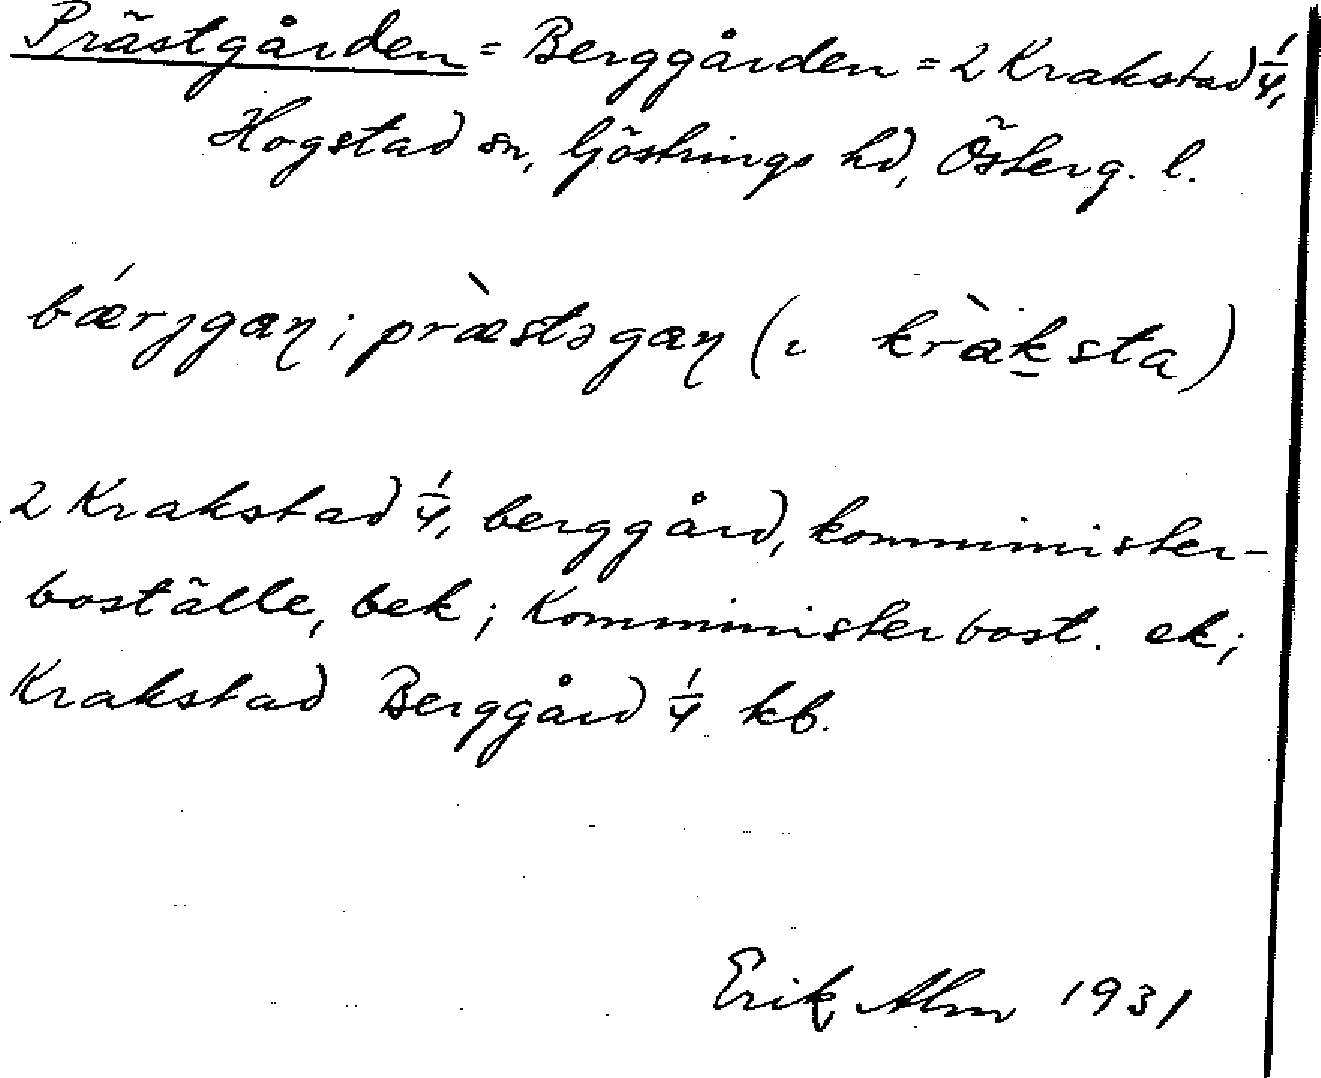 Prästgården = Berggården = 2 Krakstad 1/4,
Hogstad sn, Göstrings hd, Österg. l.
bǽrjgaɳ; præ̀stəgaɳ (ɩ kràk̠sta)
2 Krakstad 1/4, berggård, komminister-
boställe, bek; Komministerbost. ek;
Krakstad Berggård 1/4 kb.
Erik Alm 1931